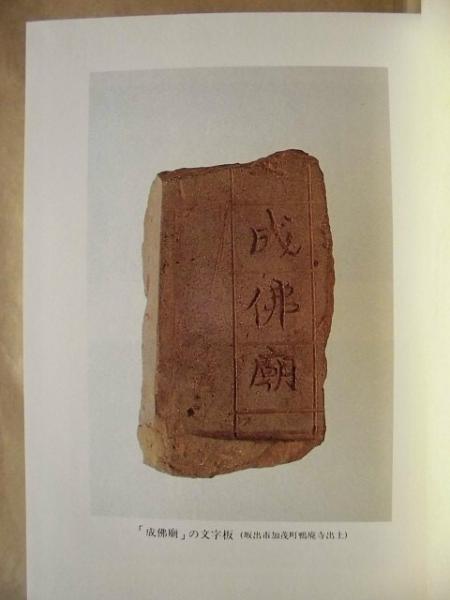 成佛廟
「成佛廟」の文字板 (坂出市加茂町鴨廃寺出土)